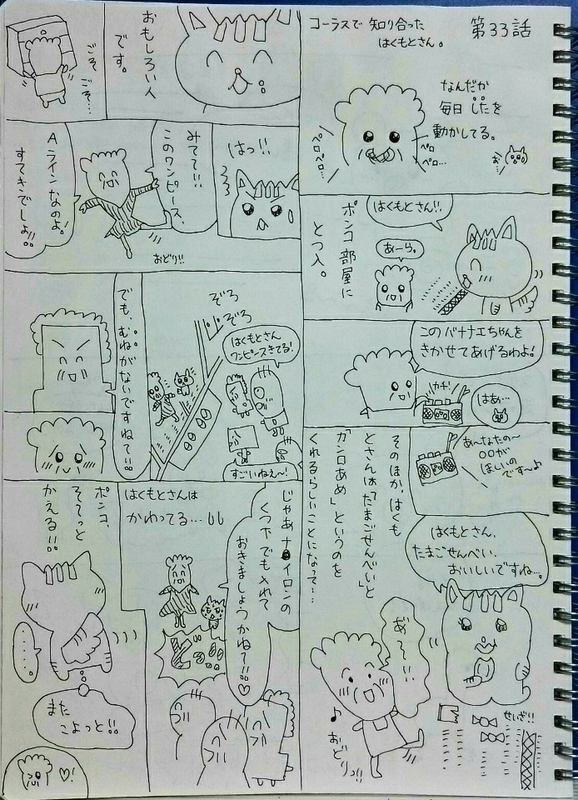 第33話
コーラスで知り合った
はくもとさん。
なんだか
毎日 したを
動かしてる。
ペロペロ…
ペロ
ペロ…
お
はくもとさん!!
あーら。
ポンコ 部屋に
とつ入。
このバナナエちゃんを
きかせてあげるわよ!
カチ!
はあ…
あ〜なたの〜
〇〇が
ほしいの
で〜す〜♪
そのほか、はくも
とさんは「たまごせんべい」と
「カンロあめ」というのを
くれるらしいことになって…
はくもとさん、
たまごせんべい、
おいしいですね…。
あ〜!!
♪おどりっ!!
せいざ!!
おもしろい人
です。
ごそ
ごそ…
はっ!!
みて〜!!
このワンピース、
Aラインなのよ!
すてきでしょ!!
おどり!!
ぞろ
ぞろ
はくもとさん
ワンピースきてる!
すごいねえ〜!
でも、むねがないですねて〜!!
じゃあナイロンの
くつ下でも入れて
おきましょうかね?!!♡
はくもとさんは
かわってる…
どっ
ポンコ、
そそっと
かえる!!
……
また
こよっと!!
♡!